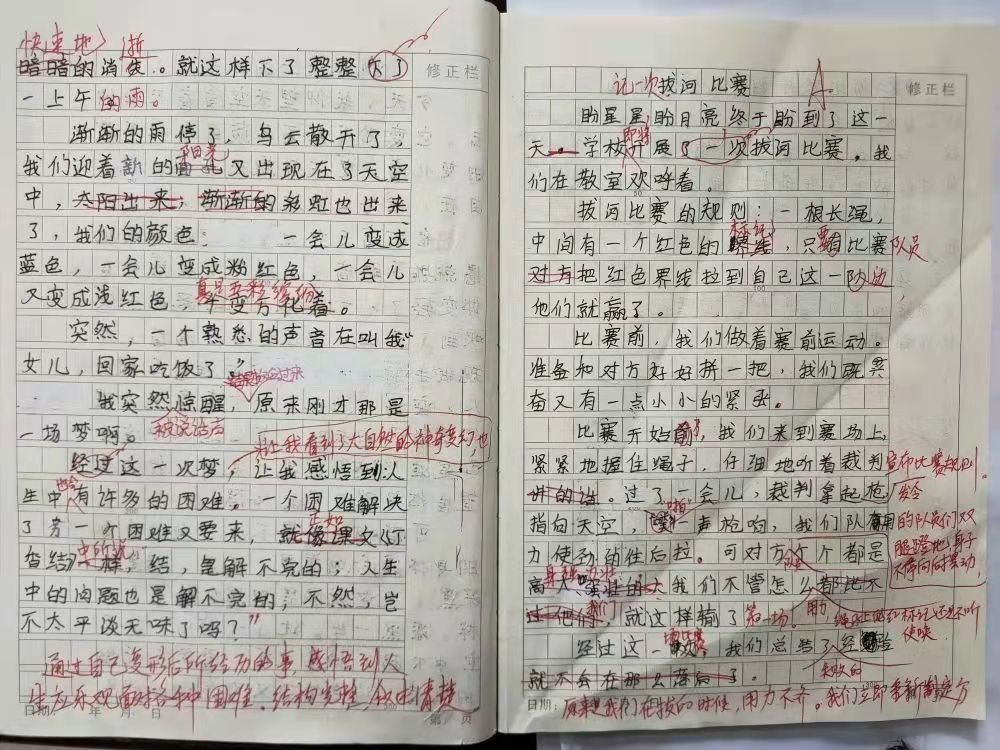 快速地 渐
暗暗的消失。就这样下了整整下了
修正栏
一上午的雨。
渐渐的雨停了,乌云散开了,
阳光
我们迎着新的 又出现在了天空
中,太阳出来,渐渐的彩虹也出来
了,我们的颜色: 一会儿变成
蓝色,一会儿变成粉红色,一会儿
真是五彩缤纷
又变成浅红色,千变万化着。
突然,一个熟悉的声音在叫我“
女儿,回家吃饭了。”
我突然惊醒,原来刚才那是
一场梦啊。
让我看到了大自然的神奇变幻,也
经过这一次梦,让我感悟到人
也会
生中有许多的困难。一个困难解决
了另一个困难又要来,就像课文《订
正如
杏结》一样,结,是解不完的;人生
中所说
中的问题也是解不完的;不然,岂
不太平淡无味了吗?”
通过自己变形后所经历的事,感悟到人
生应乐观面对各种困难。结构完整,叙述清楚
日期: 年 月 日
第 页
A
记一次拔河比赛
修正栏
盼星星盼月亮终于盼到了这一
即将
天。学校开展了一次拔河比赛。我
们在教室欢呼着。
拔河比赛的规则:一根长绳,
标记
中间有一个红色的 ,只要比赛队员
对方把红色界线拉到自己这一队边,
他们就赢了。
比赛前,我们做着赛前运动。
准备和对方好好拼一把,我们既兴
奋又有一点小小的紧张。
比赛开始前了,我们来到赛场上,
紧紧地握住绳子,仔细地听着裁判宣布比赛规则。
讲的话。过了一会儿,裁判拿起枪,
发令
“啪”
指向天空, 一声枪响,我们队 的队员们双
力使劲的往后拉。可对方个个都是
腿蹬地,身子
不停向后晃动,
高大 的大我们不管怎么都比不
过他们,就这样输了第一场。
我们
用力
使唤
经过这一 ,我们总结了经验
场比赛
失败的
就不会在那么落后了。
日期: 原来是我们在拔的时候,用力不齐。我们立即重新制定方